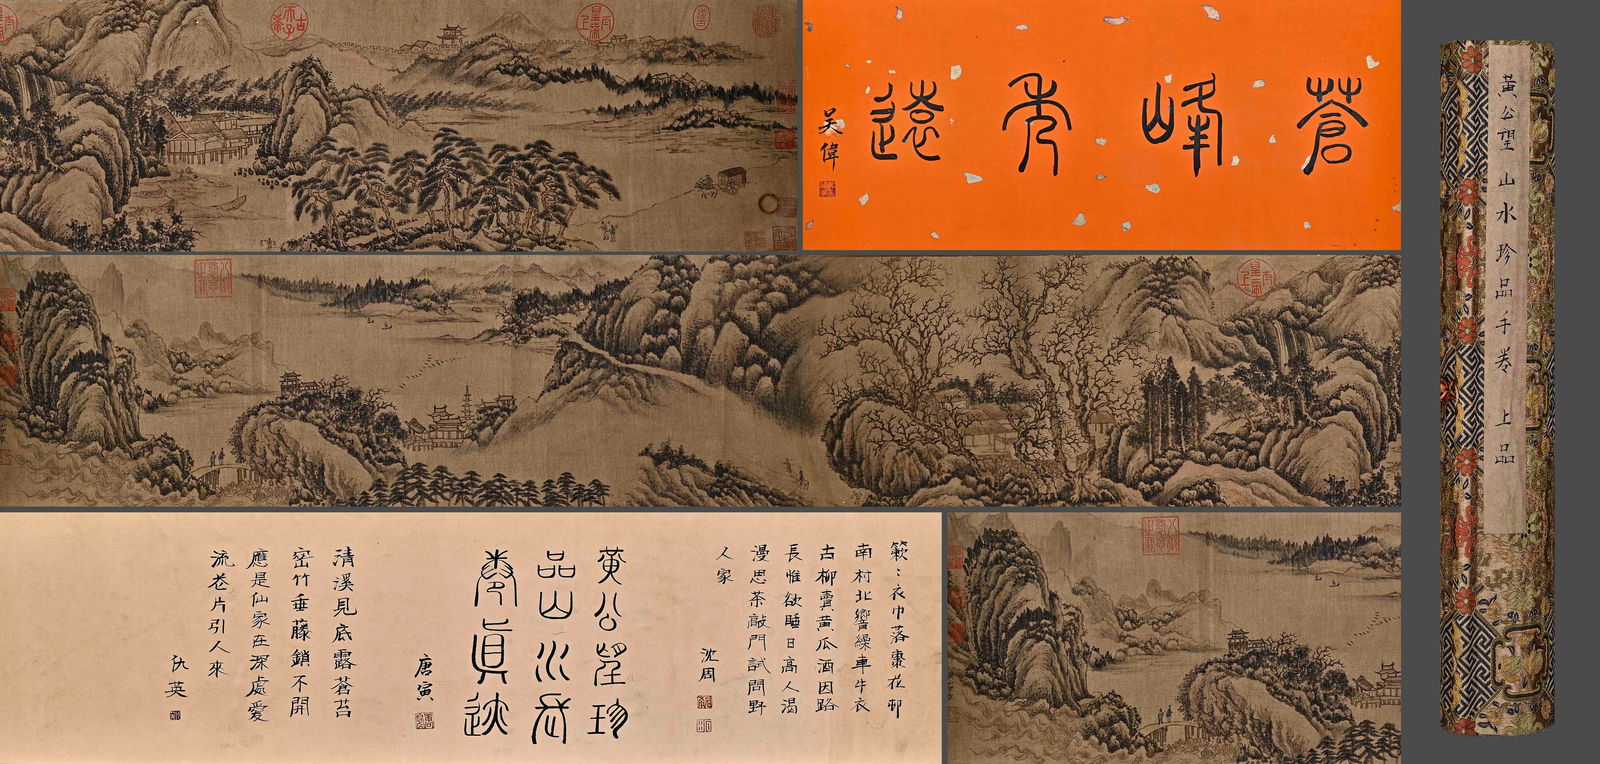 蒼峰秀遠
吳偉
黃公望山水珍品手卷 上品
簌〻衣巾落棗花邨
南村北響繰車牛衣
古柳賣黃瓜酒困路
長惟欲睡日高人渴
漫思茶敲門試問野
人家
沈周
黃公望珍
品山水武
卷真迹
唐寅
清溪見底露蒼苔
密竹垂藤鎖不開
應是仙家在深處愛
流花片引人來
仇英
古希天子
八徵耄念之寶